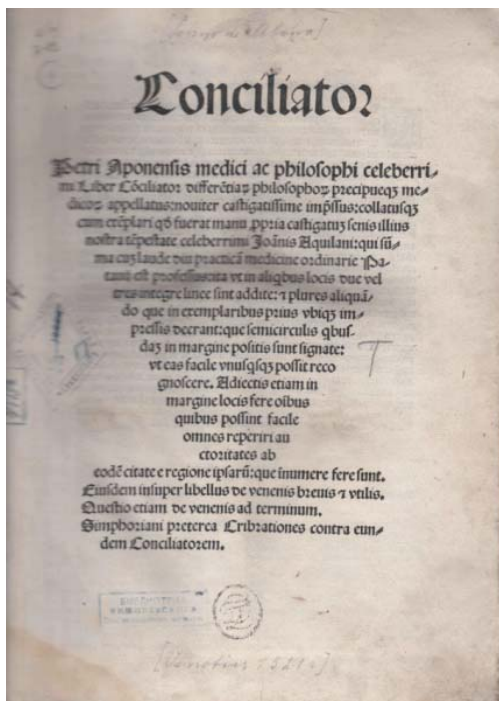 Conciliator
Petri Aponensis medici ac philosophi celeberri-
mi Liber Cōciliator differētiaꝝ philosophoꝝ precipueqꝫ me-
dicoꝝ appellatus: nouiter castigatissime imp̄ssus: collatusqꝫ
cum exēplari qď fuerat manu ꝓpria castigatuꝫ senis illius
nostra tēpestate celeberrimi Joānis Aquilani: qui sū-
ma cuꝫ laude diu practicā medicine ordinarie Pa-
tauii est professus: ita vt in aliqbus locis due vel
tres integre linee sint addite: ⁊ plures aliquā-
do que in exemplaribus prius vbiqꝫ im-
pressis deerant: que semicirculis qbus-
daꝫ in margine positis sunt signate:
vt eas facile vnusqsqꝫ possit reco
gnoscere. Adiectis etiam in
margine locis fere oībus
quibus possint facile
omnes reperiri au
ctoritates ab
eodē citate e regione ipsarū: que īnumere fere sunt.
Eiusdem insuper libellus de venenis breuis ⁊ vtilis.
Questio etiam de venenis ad terminum.
Simphoriani preterea Cribrationes contra eun-
dem Conciliatorem.
T
[Venetiis 1521]